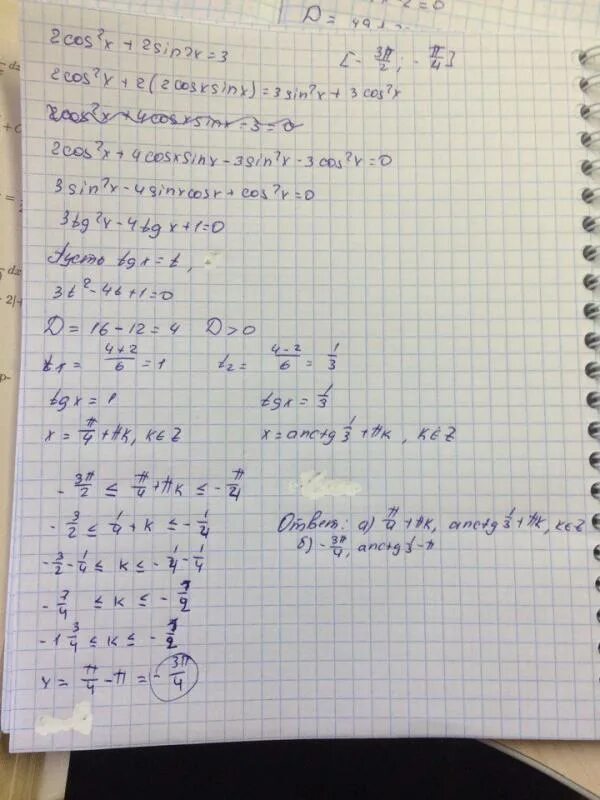 D = 49
2cos²x + 2sin2x = 3
[-3π/2; -π/4]
2cos²x + 2(2cosxsinx) = 3sin²x + 3cos²x
2cos²x + 4cosxsinx - 3 = 0
2cos²x + 4cosxsinx - 3sin²x - 3cos²x = 0
3sin²x - 4sinxcosx + cos²x = 0
3tg²x - 4tgx + 1 = 0
Пусть tgx = t,
3t² - 4t + 1 = 0
D = 16 - 12 = 4 D > 0
t₁ = (4+2)/6 = 1 t₂ = (4-2)/6 = 1/3
tgx = 1 tgx = 1/3
x = π/4 + πk, k∈Z x = arctg 1/3 + πk, k∈Z
-3π/2 ≤ π/4 + πk ≤ -π/4
-3/2 ≤ 1/4 + k ≤ -1/4
-3/2 - 1/4 ≤ k ≤ -1/4 - 1/4
-7/4 ≤ k ≤ -1/2
-1 3/4 ≤ k ≤ -1/2
x = π/4 - π = -3π/4
Ответ: а) π/4 + πk, arctg 1/3 + πk, k∈Z
б) -3π/4, arctg 1/3 - π